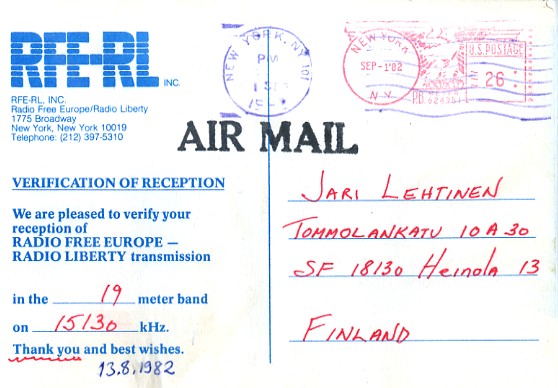 RFE-RL INC.
RFE-RL, INC.
Radio Free Europe/Radio Liberty
1775 Broadway
New York, New York 10019
Telephone: (212) 397-5310
NEW YORK, NY
PM
NEW YORK
SEP-1'82
N.Y.
U.S. POSTAGE
26
AIR MAIL
VERIFICATION OF RECEPTION
We are pleased to verify your
reception of
RADIO FREE EUROPE —
RADIO LIBERTY transmission
in the 19 meter band
on 15130 kHz.
Thank you and best wishes.
13.8.1982
JARI LEHTINEN
TOMMOLANKATU 10 A 30
SF 18130 Heinola 13
FINLAND